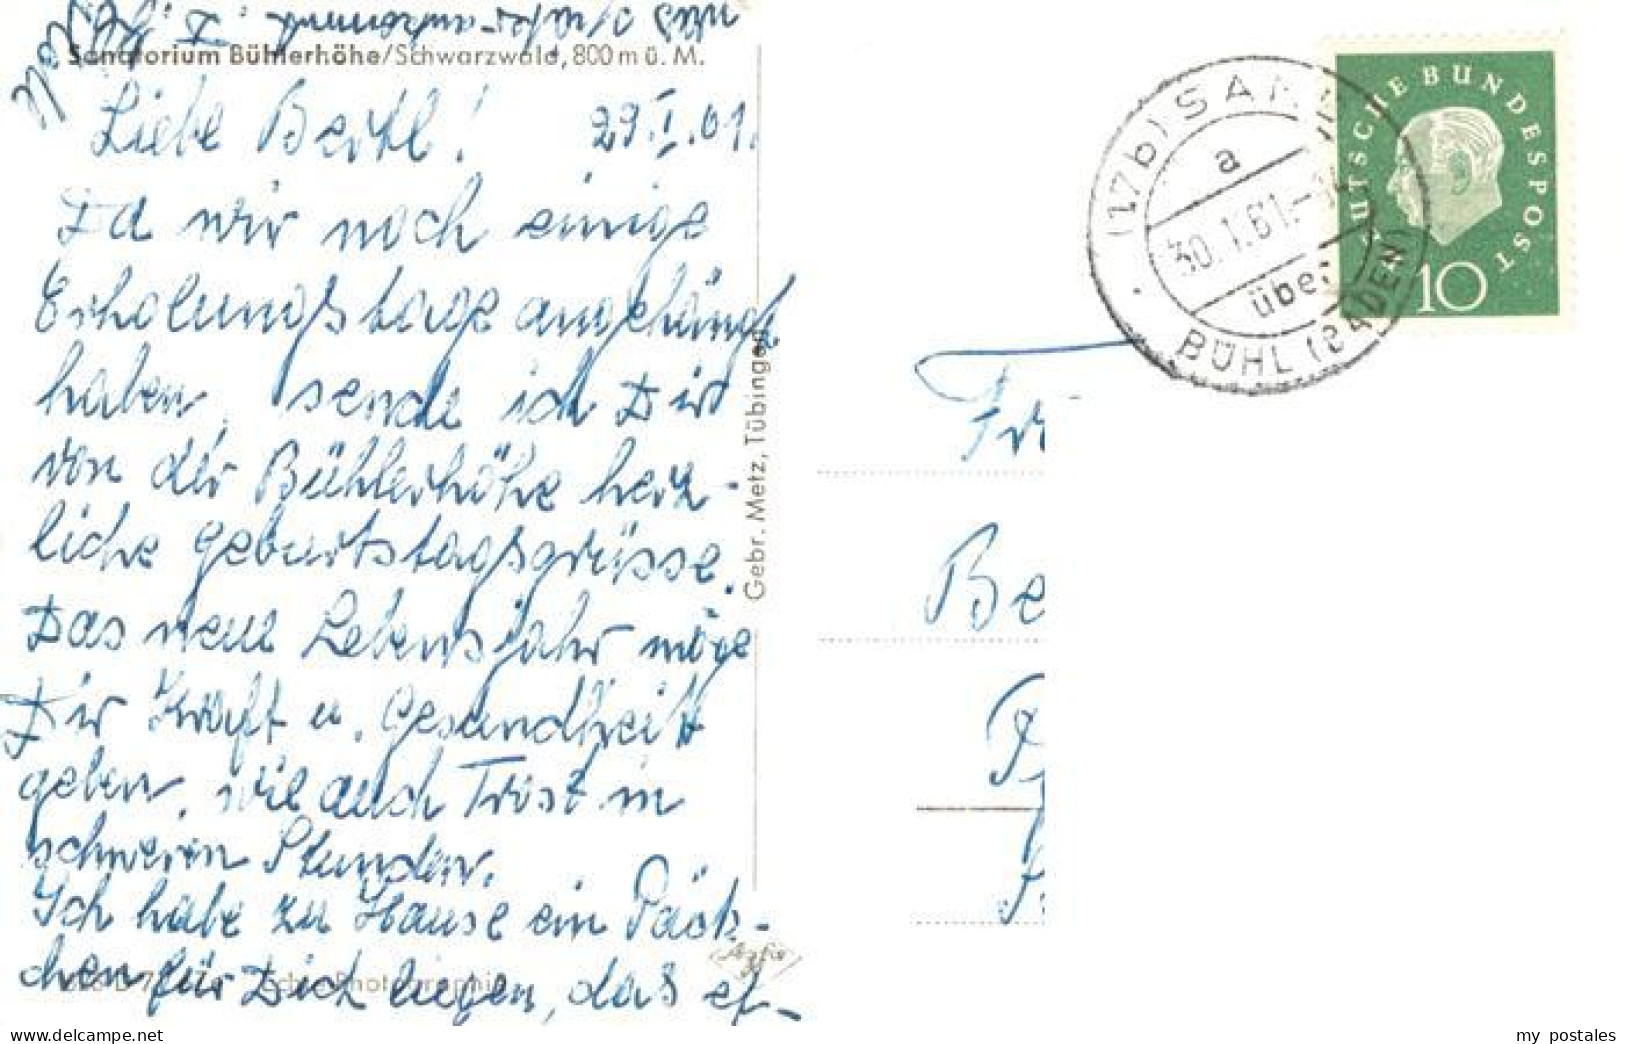 Sanatorium Bühlerhöhe/Schwarzwald, 800 m ü. M.
Liebe Bertl! 29.I.61.
Da wir noch einige
Erholungstage angehängt
haben, sende ich Dir
von der Bühlerhöhe herz-
liche Geburtstagsgrüsse.
Das neue Lebensjahr möge
Dir Kraft u. Gesundheit
geben, wie auch Trost in
schweren Stunden.
Ich habe zu Hause ein Päck-
chen für Dich liegen, das
Gebr. Metz, Tübingen
DEUTSCHE BUNDESPOST
10
(17b) SAN
a
30.1.61.
über
BÜHL (BADEN)
Fr
Be
www.delcampe.net
my postales